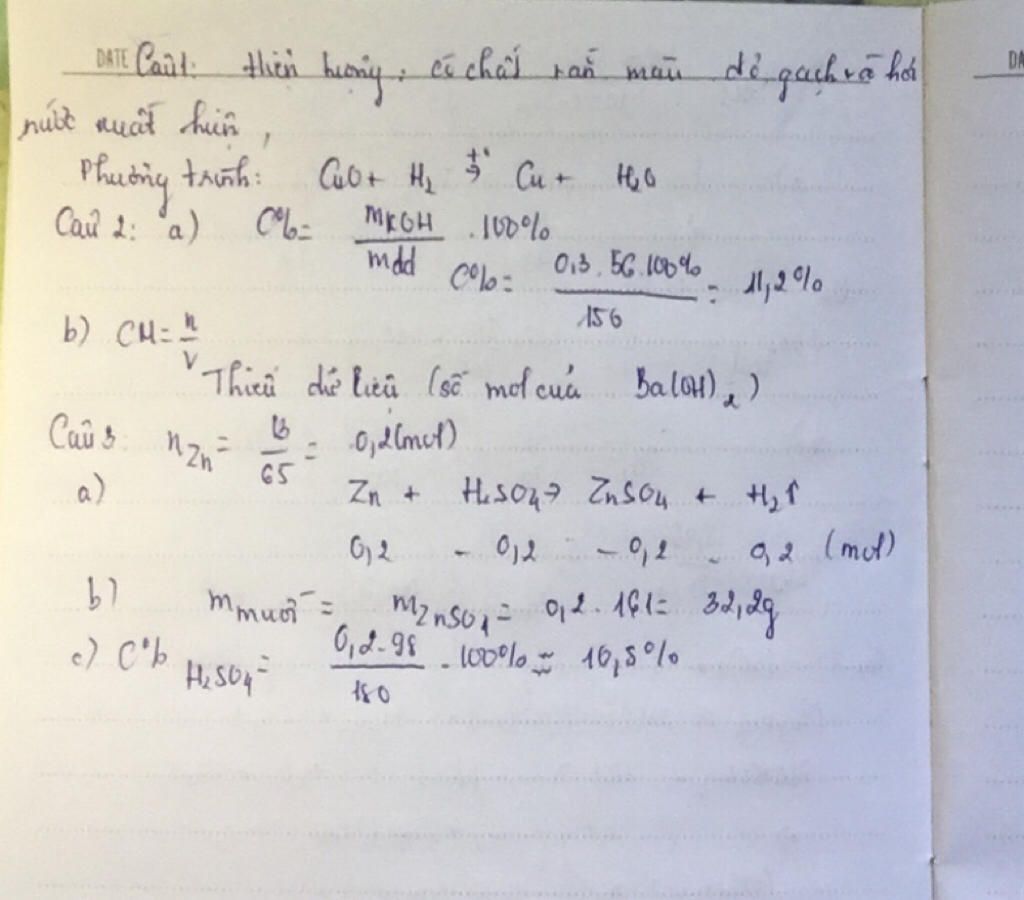 DATE Câu 1: Hiện tượng: có chất rắn màu đỏ gạch và hơi
nước xuất hiện,
Phương trình: CuO + H₂ →ᵗ° Cu + H₂O
Câu 2: a) C% = mKOH / mdd . 100%
C% = 0,3 . 56 . 100% / 150 = 11,2%
b) CM = n / V
Thiếu dữ liệu (số mol của Ba(OH)₂)
Câu 3: nZn = 13 / 65 = 0,2 (mol)
a) Zn + H₂SO₄ → ZnSO₄ + H₂↑
0,2 - 0,2 - 0,2 - 0,2 (mol)
b) m muối = mZnSO₄ = 0,2 . 161 = 32,2g
c) C% H₂SO₄ = 0,2 . 98 / 180 . 100% ≈ 10,8%